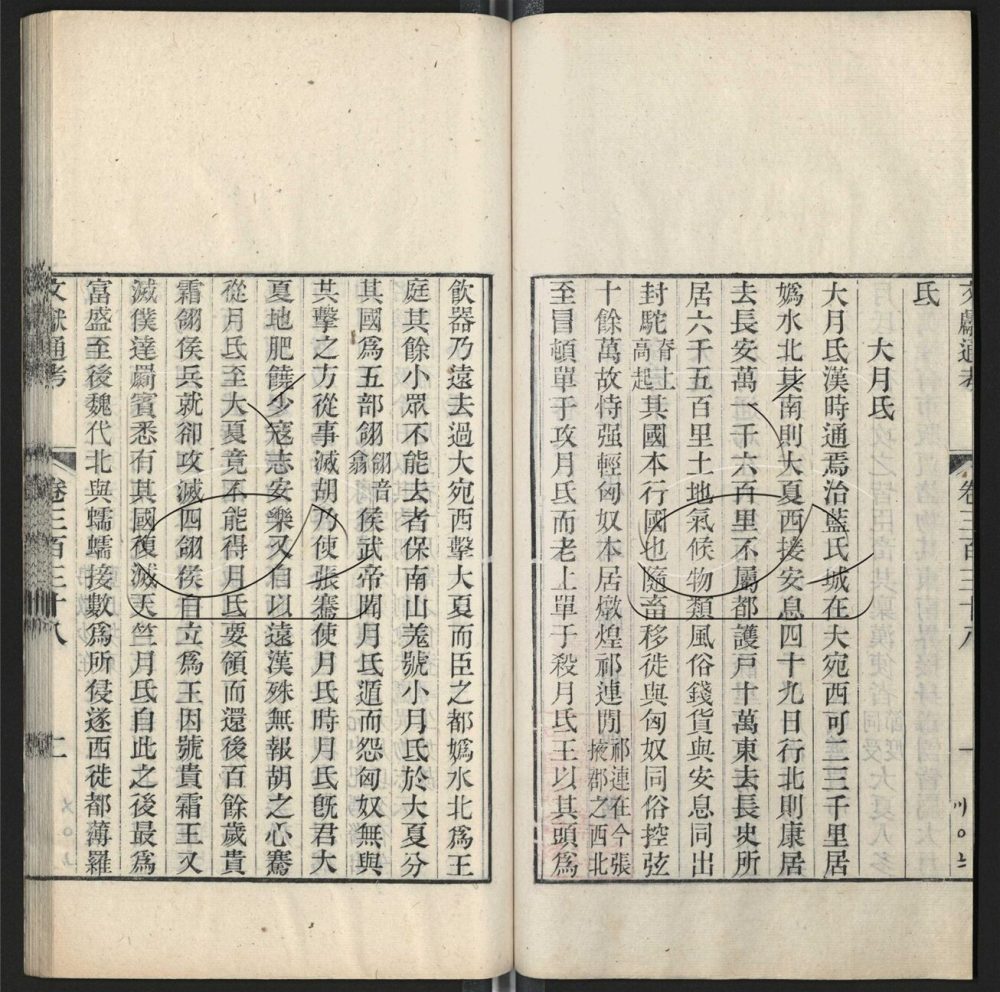 文獻通考 卷三百三十八
氏
大月氏
大月氏漢時通焉治藍氏城在大宛西可二三千里居
媯水北其南則大夏西接安息四十九日行北則康居
去長安萬一千六百里不屬都護戶十萬東去長史所
居六千五百里土地氣候物類風俗錢貨與安息同出
封駝脊上高起其國本行國也隨畜移徙與匈奴同俗控弦
十餘萬故恃强輕匈奴本居燉煌祁連閒祁連在今張掖郡之西北
至冒頓單于攻月氏而老上單于殺月氏王以其頭爲
飲器乃遠去過大宛西擊大夏而臣之都媯水北爲王
庭其餘小眾不能去者保南山羗號小月氏於大夏分
其國爲五部翖翖音翕侯武帝聞月氏遁而怨匈奴無與
共擊之方從事滅胡乃使張騫使月氏時月氏旣君大
夏地肥饒少寇志安樂又自以遠漢殊無報胡之心騫
從月氏至大夏竟不能得月氏要領而還後百餘歲貴
霜翖侯兵就卻攻滅四翖侯自立爲王因號貴霜王又
滅僕達罽賓悉有其國復滅天竺月氏自此之後最爲
富盛至後魏代北與蠕蠕接數爲所侵遂西徙都薄羅
文獻通考 卷三百三十八